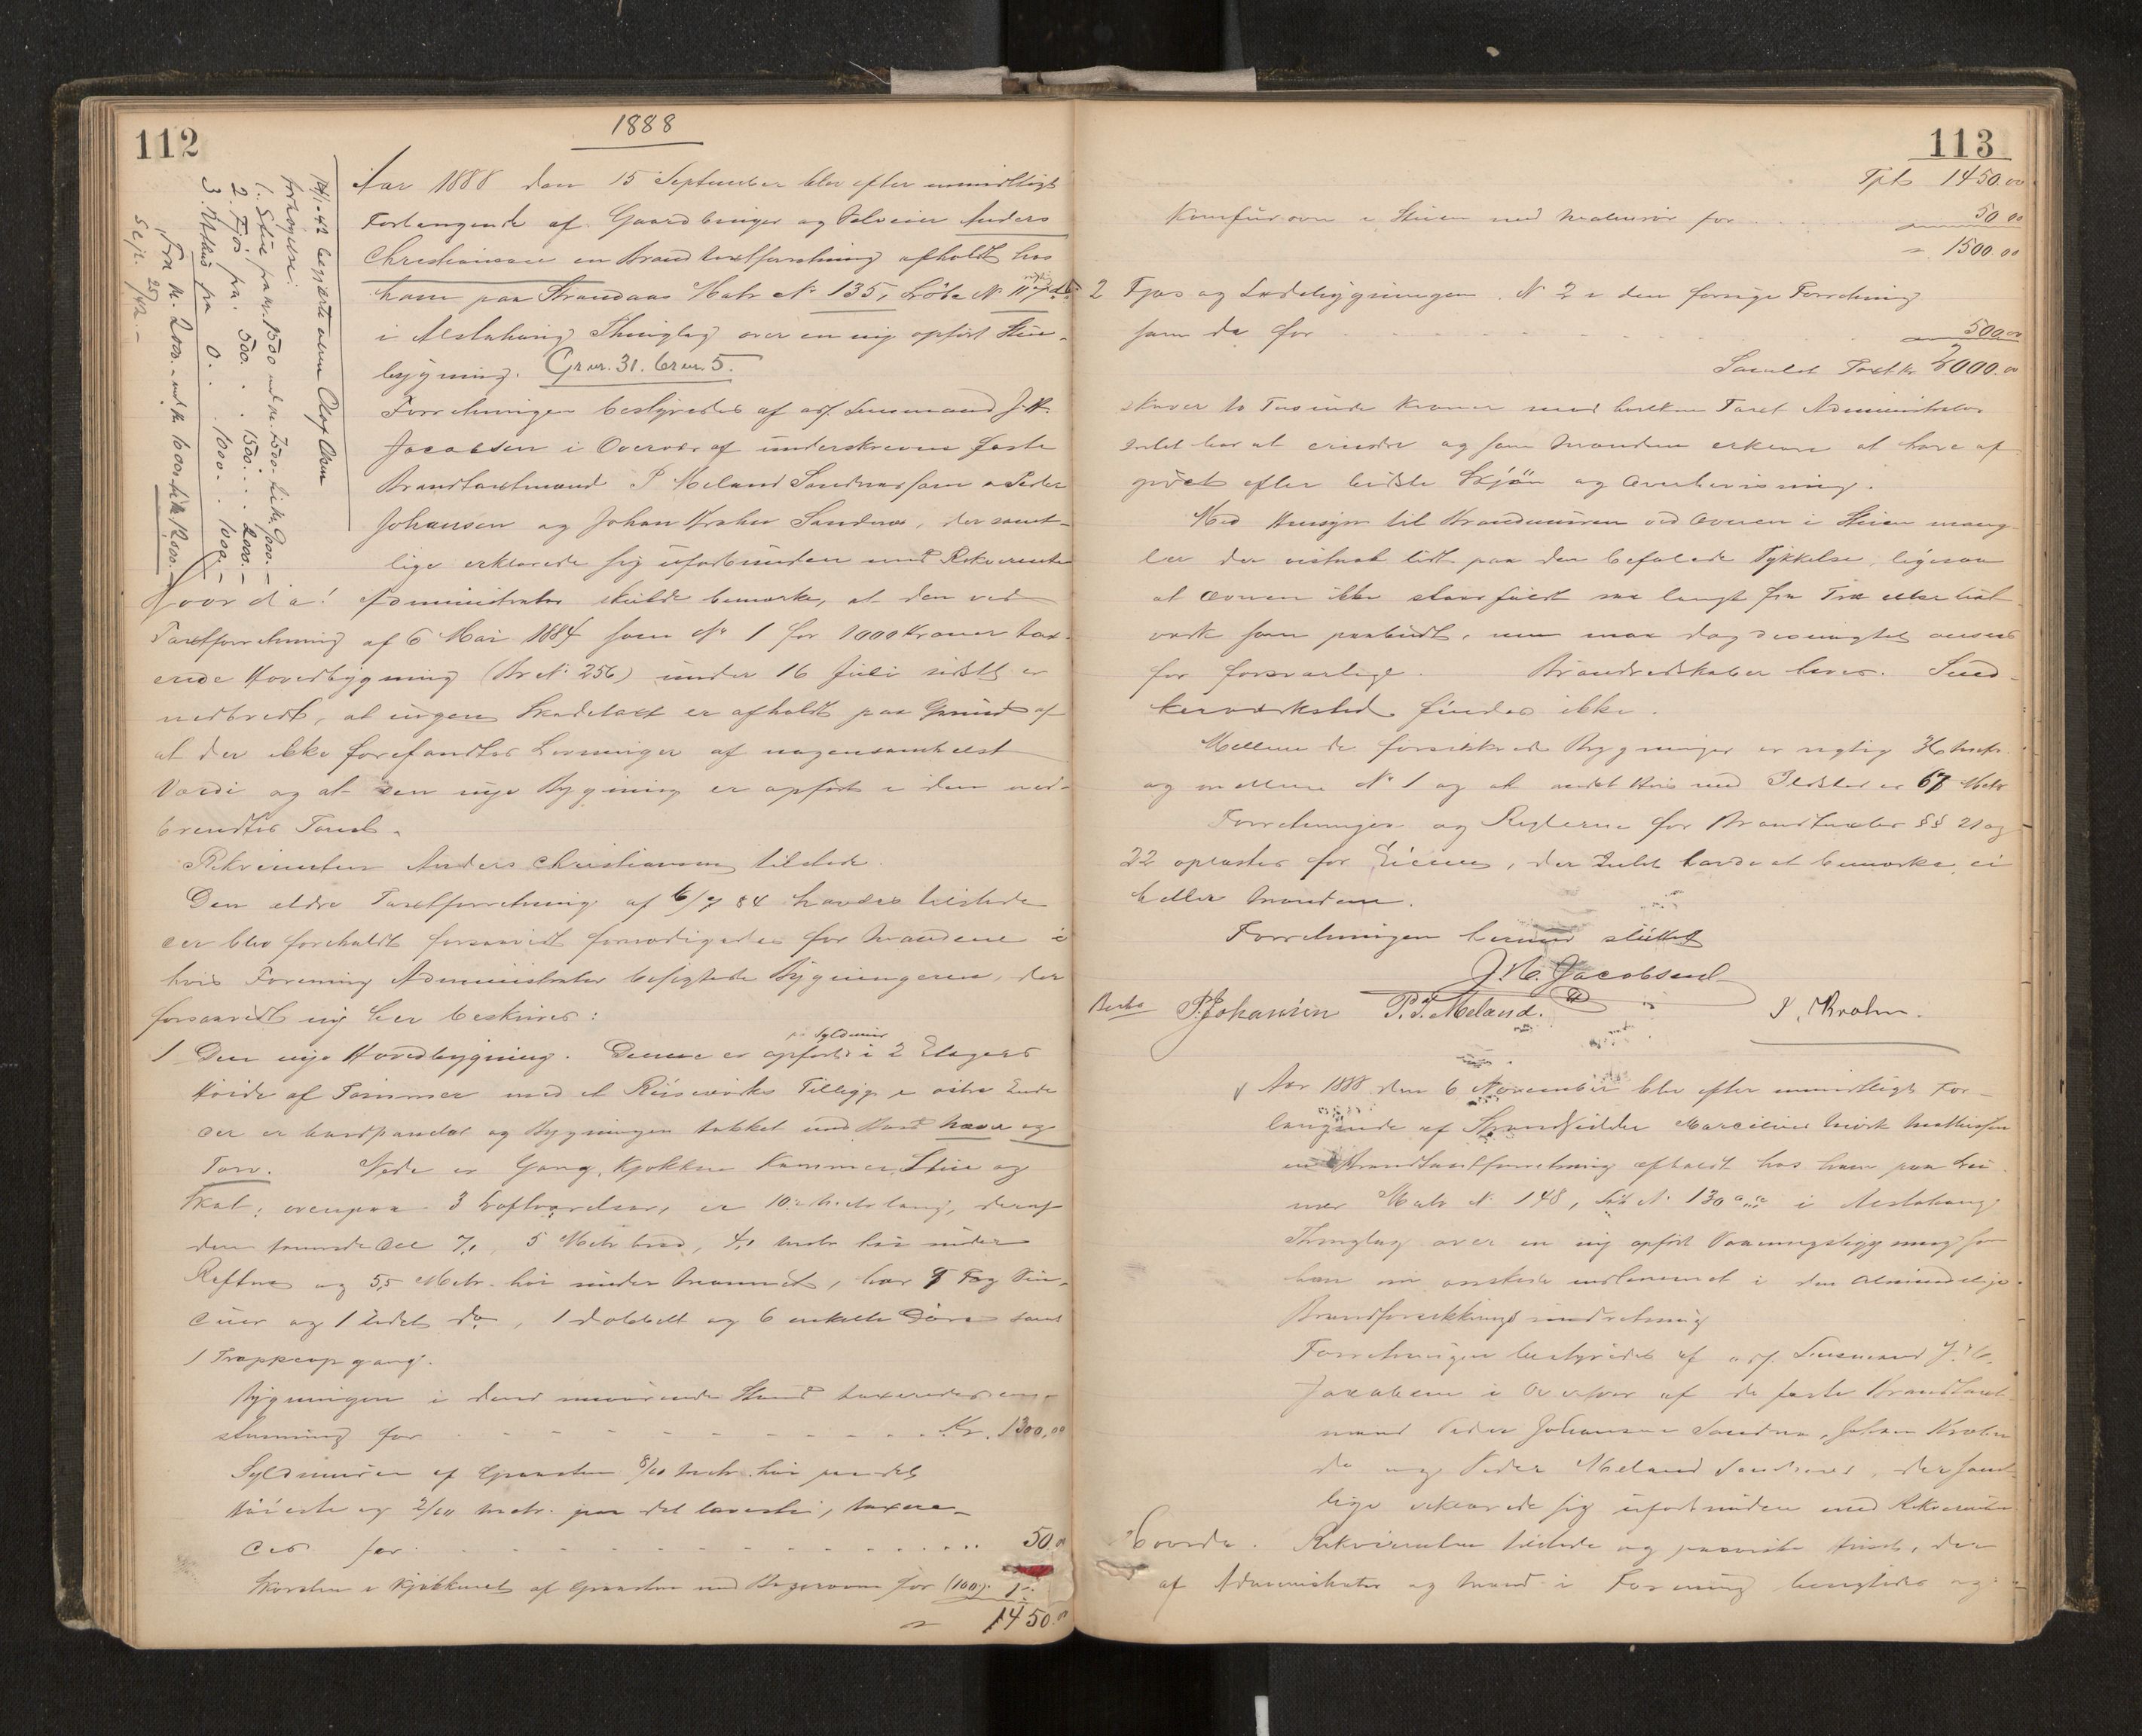 112
1888
Aar 1888 den 15 September blev efter mundtligt
Forlangende af Gaardbruger og Selveier Anders
Christiansen en Brandtaxtforretning afholdt hos
ham paa Strandaas Matr No 135, Løbe No 117 d
i Alstahoug Thinglag over en ny opført Stue-
bygning. Grnr. 31. brnr. 5.
Forretningen bestyredes af adj. Lensmand J. H.
Jacobsen i Overvær af underskrevne faste
Brandtaxtmænd P Meland Sandnæssøen, Peder
Johansen og Johan Krohn Sandnæs, der samt-
lige erklærede sig uforbunden med Rekvirenten
Hvorda! Administrator skulde bemærke, at den ved
Taxtforretning af 6 Mai 1884 som No 1 for 1000 Kroner tax-
erede Hovedbygning (Br No 256) under 16 Juli sidstl er
nedbrendt, at ingen Skadetaxt er afholdt paa Grund af
at der ikke forefandtes Levninger af nogensomhelst
Værdi og at den nye Bygning er opført i den ned-
brendtes Sted.
Rekvirenten Anders Christiansen tilstede.
Den eldre Taxtforretning af 6/5 84 havdes tilstede
der blev foreholdt forsaavidt fornødigedes for Mændene i
hvis Forening Administrator besigtede Bygningerne, der
forsaavidt ny her beskrives:
på Syldmur
1 Den nye Hovedbygning. Denne er opført i 2 Etagers
Høide af Tømmer med et Reisværks Tillegg i østre Ende
der er bordpandet og Bygningen tækket med Bord Næver og
Torv. Nede er Gang, Kjøkken Kammer, Stue og
Skot, ovenpaa 3 Loftværelser, er 10 Metr lang, deraf
den tømrede Del 7,1, 5 Metr bred, 4,1 Metr høi under
Raftne og 5,5 Metr. høi under Mønnet, har 9 Fag Vin-
duer og 1 lidet do, 1 dobbelt og 6 enkelte Døre samt
1 Trappeopgang.
Bygningen i dens nuværende Stand taxeredes een-
stemmig for Kr. 1300,00
Syldmuren af Graasten 8/10 Metr høi paa det
Høieste og 2/10 Metr. paa det laveste, taxere-
des for 50.00
Skorsten i Kjøkkenet af Graasten med Bagerovn for (100)
1450.00
14/1-42 begjærte eieren Olaf Olsen
forhøyelse:
1. Stue fra kr. 1500 med kr. 7500.- til kr. 9000.-
2. Fjøs fra 500. . 1500. . 2000.-
3. Kolhus fra 0. . 1000. . 1000.-
Fra kr. 2000.- med kr. 10000.- til kr. 12000.-
113
Tpt 1450.00
Komfürovn i Stuen med Malmrør for 50 00
1500.00
2 Fjøs og Ladebygningen. No 2 i den forrige Forretning
som da for 500.00
Samlet Taxt kr 2000.00
skriver to Tusinde Kroner mod hvilken Taxt Administrator
Intet har at erindre og som Mændene erkjendte at have af-
givet efter bedste Skjøn og Overbevisning.
Med Hensyn til Brandmuren ved Ovnen i Stuen mang-
ler der vistnok lidt paa den befalede Tykkelse, ligesaa
at Ovnen ikke staar fuldt saa langt fra Træ eller Træ-
verk som paabudt, men maa dog desuagtet ansees
for forsvarlige. Brandredskaber haves. Sned-
kerverksted findes ikke.
Mellem de forsikkrede Bygninger er rigtig 36 Metr.
og mellem No 1 og et andet Hus med Ildsted er 67 Metr
Forretningen og Reglerne for Brandtaxter §§ 21 og
22 oplæstes for Eieren, der Intet havde at bemærke, ei
heller Mændene.
Forretningen hermed sluttet
J. H. Jacobsen
P. Johansen P. J. Meland. J. Krohn.
Aar 1888 den 6 November blev efter mundtligt For-
langende af Strandsidder Marcelius Mørk Mathiesen
en Brandtaxtforretning afholdt hos ham paa
Matr No 148, Løb No 130 i Alstahoug
Thinglag over en ny opført Vaaningsbygning som
han nu ønskede indlemmet i den Almindelige
Brandforsikkringsindretning
Forretningen bestyredes af adj. Lensmand J. H.
Jacobsen i Overvær af de faste Brandtaxt-
mænd Peder Johansen Sandnæs, Johan Krohn
do og Peder Meland Sandnæs, der samt-
lige erklærede sig uforbunden med Rekvirenten
Hvorda. Rekvirenten tilstede og paaviste Huset, der
af Administrator og Mænd i Forening besigtedes og